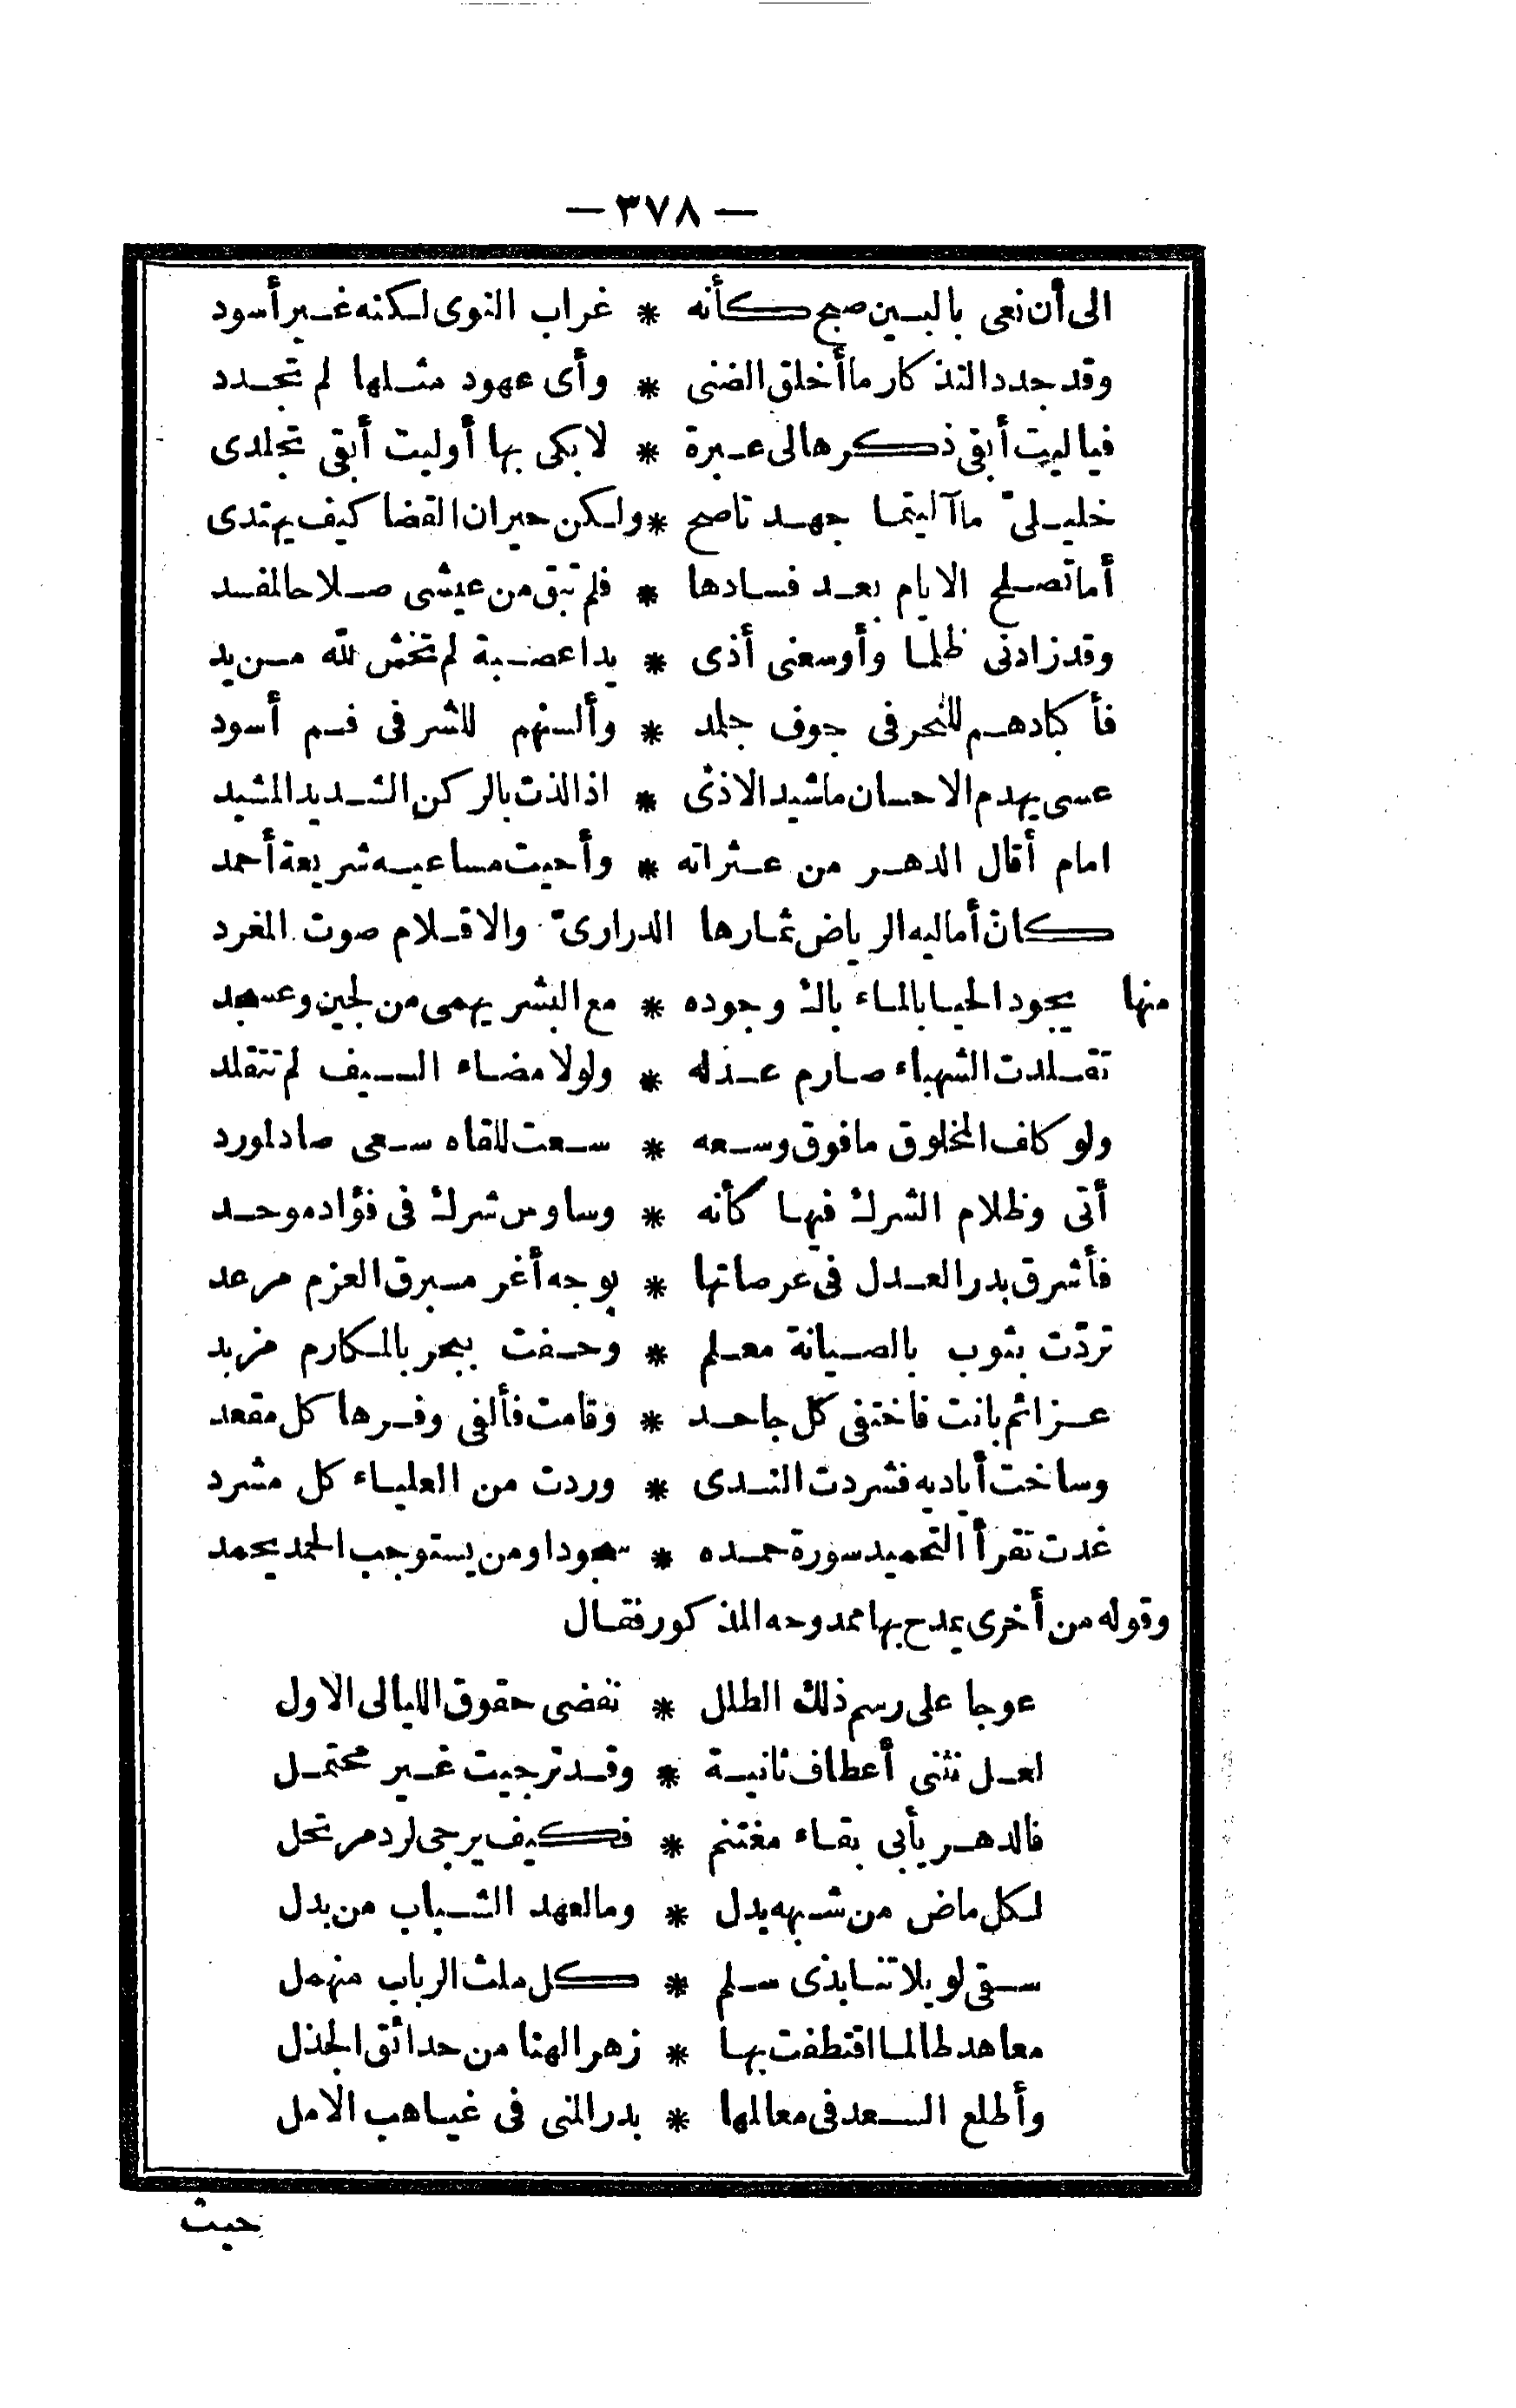 — ٣٧٨ —
الى أن نعى بالبين صبح كأنه * غراب النوى لكنه غير أسود
وقد جدد التذكار ما أخلق الضنى * وأى عهود مثلها لم تجدد
فيا ليت أبقى ذكرها لى عبرة * لابكى بها أو ليت أبقى تجلدى
خليلىّ ما آليتما جهد ناصح * ولكن حيران القضا كيف يهتدى
أما تصلح الايام بعد فسادها * فلم تبق من عيشى صلاحا لمفسد
وقد زادنى ظلما وأوسعنى أذى * يدا عصبة لم تخش لله من يد
فأكبادهم للنحر فى جوف جلد * وألسنهم للشر فى فم أسود
عسى يهدم الاحسان ما شيد الاذى * اذا لذت بالركن الشديد المشيد
امام أقال الدهر من عثراته * وأحيت مساعيه شريعة أحمد
كان أماليه الرياض ثمارها الدرارىّ والاقلام صوت المغرد
منها يجود الحيا بالماء بالك وجوده * مع البشر يهمى من لجين وعسجد
تقلدت الشهباء صارم عدله * ولولا مضاء السيف لم تتقلد
ولو كاف المخلوق ما فوق وسعه * سعت للقاه سعى صاد لمورد
أتى وظلام الشرك فيها كأنه * وساوس شرك فى فؤاد موحد
فأشرق بدر العدل فى عرصاتها * بوجه أغر مبرق العزم مرعد
تردّت بثوب بالصيانة معلم * وحفت ببحر بالمكارم مزبد
عزائم بانت فاختفى كل جاحد * وقامت فألفى وفرها كل مقعد
وساخت أياديه فشردت الندى * وردت من العلياء كل مشرد
غدت تقرأ التحميد سورة حمده * سجودا ومن يستوجب الحمد يحمد
وقوله من أخرى يمدح بها ممدوحه المذكور فقال
عوجا على رسم ذلك الطلل * نقضى حقوق الليالى الاول
لعل نثنى أعطاف ثانية * وقد ترجيت غير محتمل
فالدهر يأبى بقاء مغتنم * فكيف يرجى لرد مرتحل
لكل ماض من شبهه بدل * وما لعهد الشباب من بدل
سقى لويلاتنا بذى سلم * كل ملث الرباب منهمل
معاهد طالما اقتطفت بها * زهر الهنا من حدائق الجذل
وأطلع السعد فى معالمها * بدر المنى فى غياهب الامل
حيث